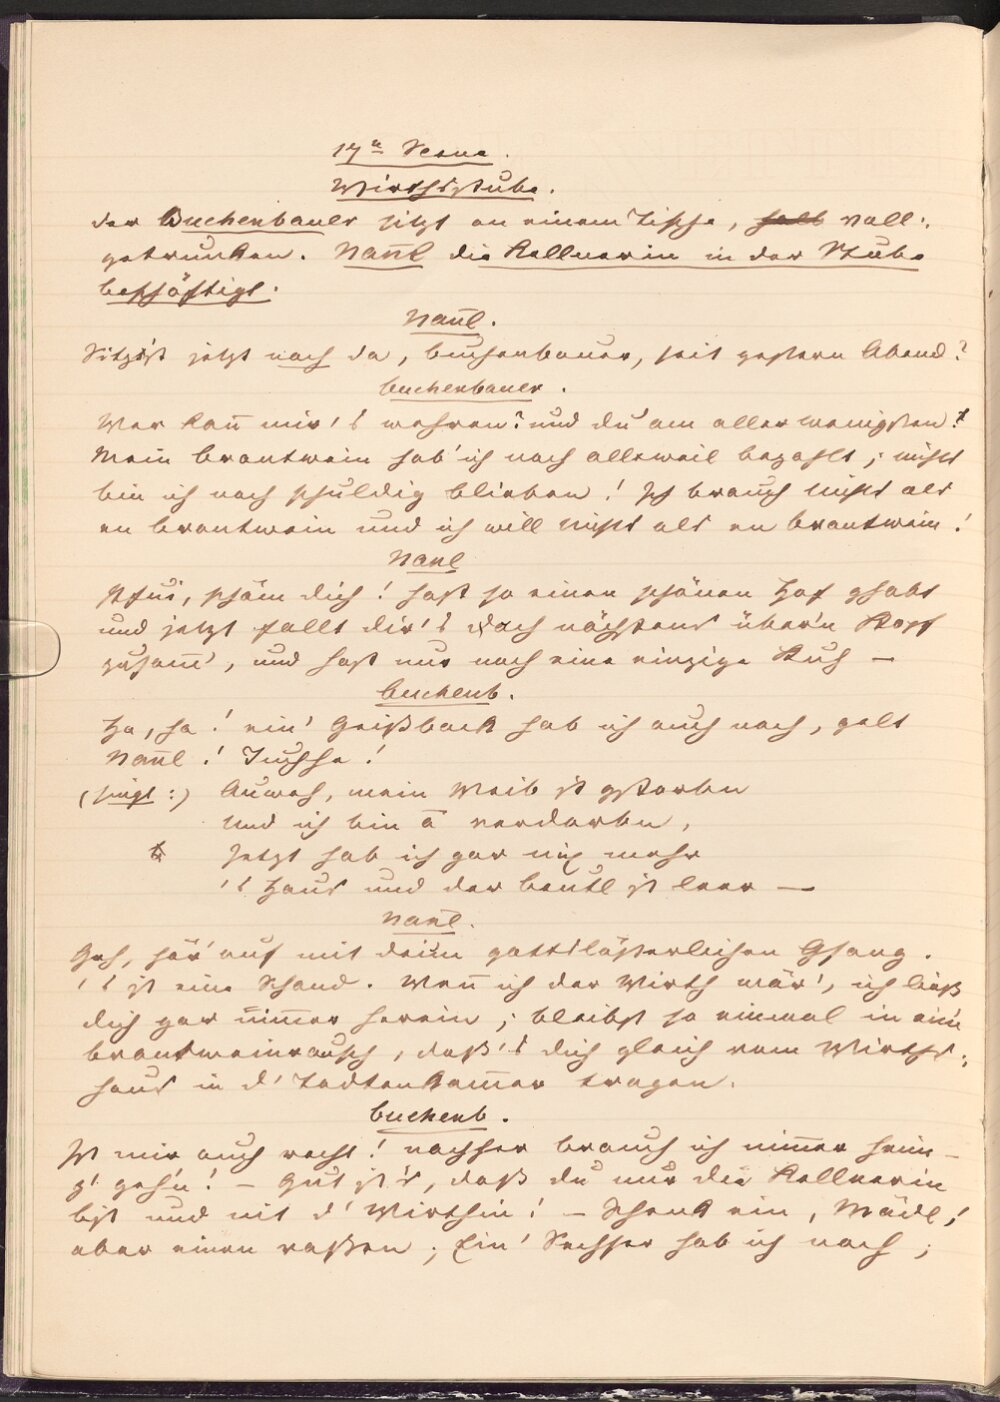 17te Scene.
Wirthsstube.
Der Buchenbauer sitzt an einem Tische, halb voll-
getrunken. Nan̄l die Kellnerin in der Stube
beschäftigt.
Nan̄l.
Sitzt jetzt noch da, Buchenbauer, seit gestern Abend?
Buchenbauer.
Wer kan̄ mir's wehren? und du am allerwenigsten!
Mein Brantwein hab' ich noch alleweil bezahlt; nichts
bin ich noch schuldig blieben! Ich brauch nichts als
en Brantwein und ich will nichts als en Brantwein!
Nanl
Pfui, schäm dich! hast so einen schönen Hof ghabt
und jetzt fallt dir's Dach nächstens über'n Kopf
zusam̄, und hast nur noch eine einzige Kuh —
Buchenb.
Ha, ha! ein' Geißbock hab ich auch noch, gelt
Nan̄l! Juchhe!
(singt:) Auweh, mein Weib ist gstorben
Und ich bin ā verdorben,
Jetzt hab ich gar nix mehr
's Haus und der Beutl ist leer —
Nan̄l.
Geh, hör' auf mit dein gottslästerlichen Gsang.
's ist eine Schand. Wen̄ ich der Wirth wär', ich ließ
dich gar nim̄er herein; bleibst so einmal in ein'
Brantweinrausch, daß's dich gleich vom Wirths-
haus in d' Todtenkam̄er tragen.
Buchenb.
Ist mir auch recht! nachher brauch ich nim̄er heim-
z' gehn! — Gut ist's, daß du nur die Kellnerin
bist und nit d' Wirthin! — Schenk ein, Mädl,!
aber einen raßen; Ein' Sechser hab ich noch;